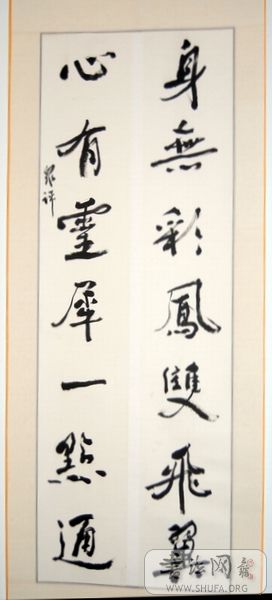 身無彩鳳雙飛翼
心有靈犀一點通
书法网
WWW.SHUFA.ORG